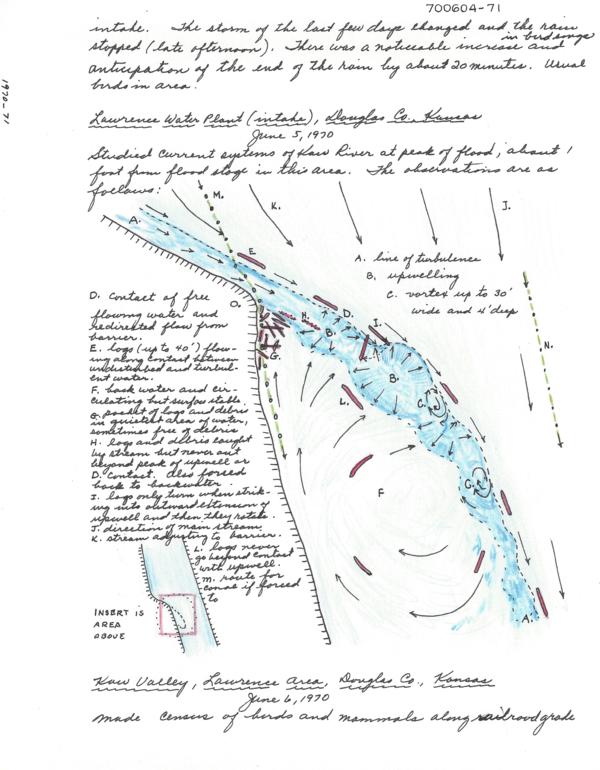 700604-71
intake. The storm of the last few days changed and the rain
in bird songs
stopped (late afternoon). There was a noticeable increase and
anticipation of the end of the rain by about 20 minutes. Usual
birds in area.
1970-71
Lawrence Water Plant (intake), Douglas Co., Kansas
June 5, 1970
Studied current systems of Kaw River at peak of flood, about 1
foot from flood stage in this area. The observations are as
follows:
M.
K.
J.
A.
E
A. line of turbulence
B. upwelling
C. vortex up to 30'
wide and 4' deep
D. Contact of free
flowing water and
redirected flow from
barrier.
E. logs (up to 40') flow-
ing along contact between
undisturbed and turbul-
ent water.
F. back water and cir-
culating but surface stable.
G. pocket of logs and debris
in quietest area of water,
sometimes free of debris
H. logs and debris caught
by stream but never out
beyond peak of upwell or
D. Contact. also forced
back to backwater.
I. logs only turn when strik-
ing into outward extension of
upwell and then they rotate.
J. direction of main stream.
K. stream adjusting to barrier.
L. logs never
go beyond contact
with upwell.
M. route for
canoe if forced
to
O.
D.
H.
B.
I.
G.
N.
L.
B.
C.
F
C.
A.
INSERT IS
AREA
ABOVE
Kaw Valley, Lawrence Area, Douglas Co., Kansas
June 6, 1970
made census of birds and mammals along railroad grade